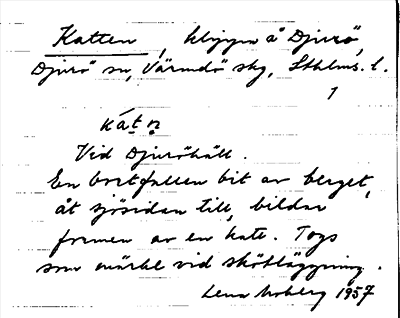 Katten, klippa å Djurö,
Djurö sn, Värmdö skg, Sthlms. l.
1
kát̠n̠
Vid Djuröhäll.
En bortfallen bit av berget,
åt sjösidan till, bildar
formen av en katt. Togs
som märke vid skötläggning.
Lena Moberg 1957